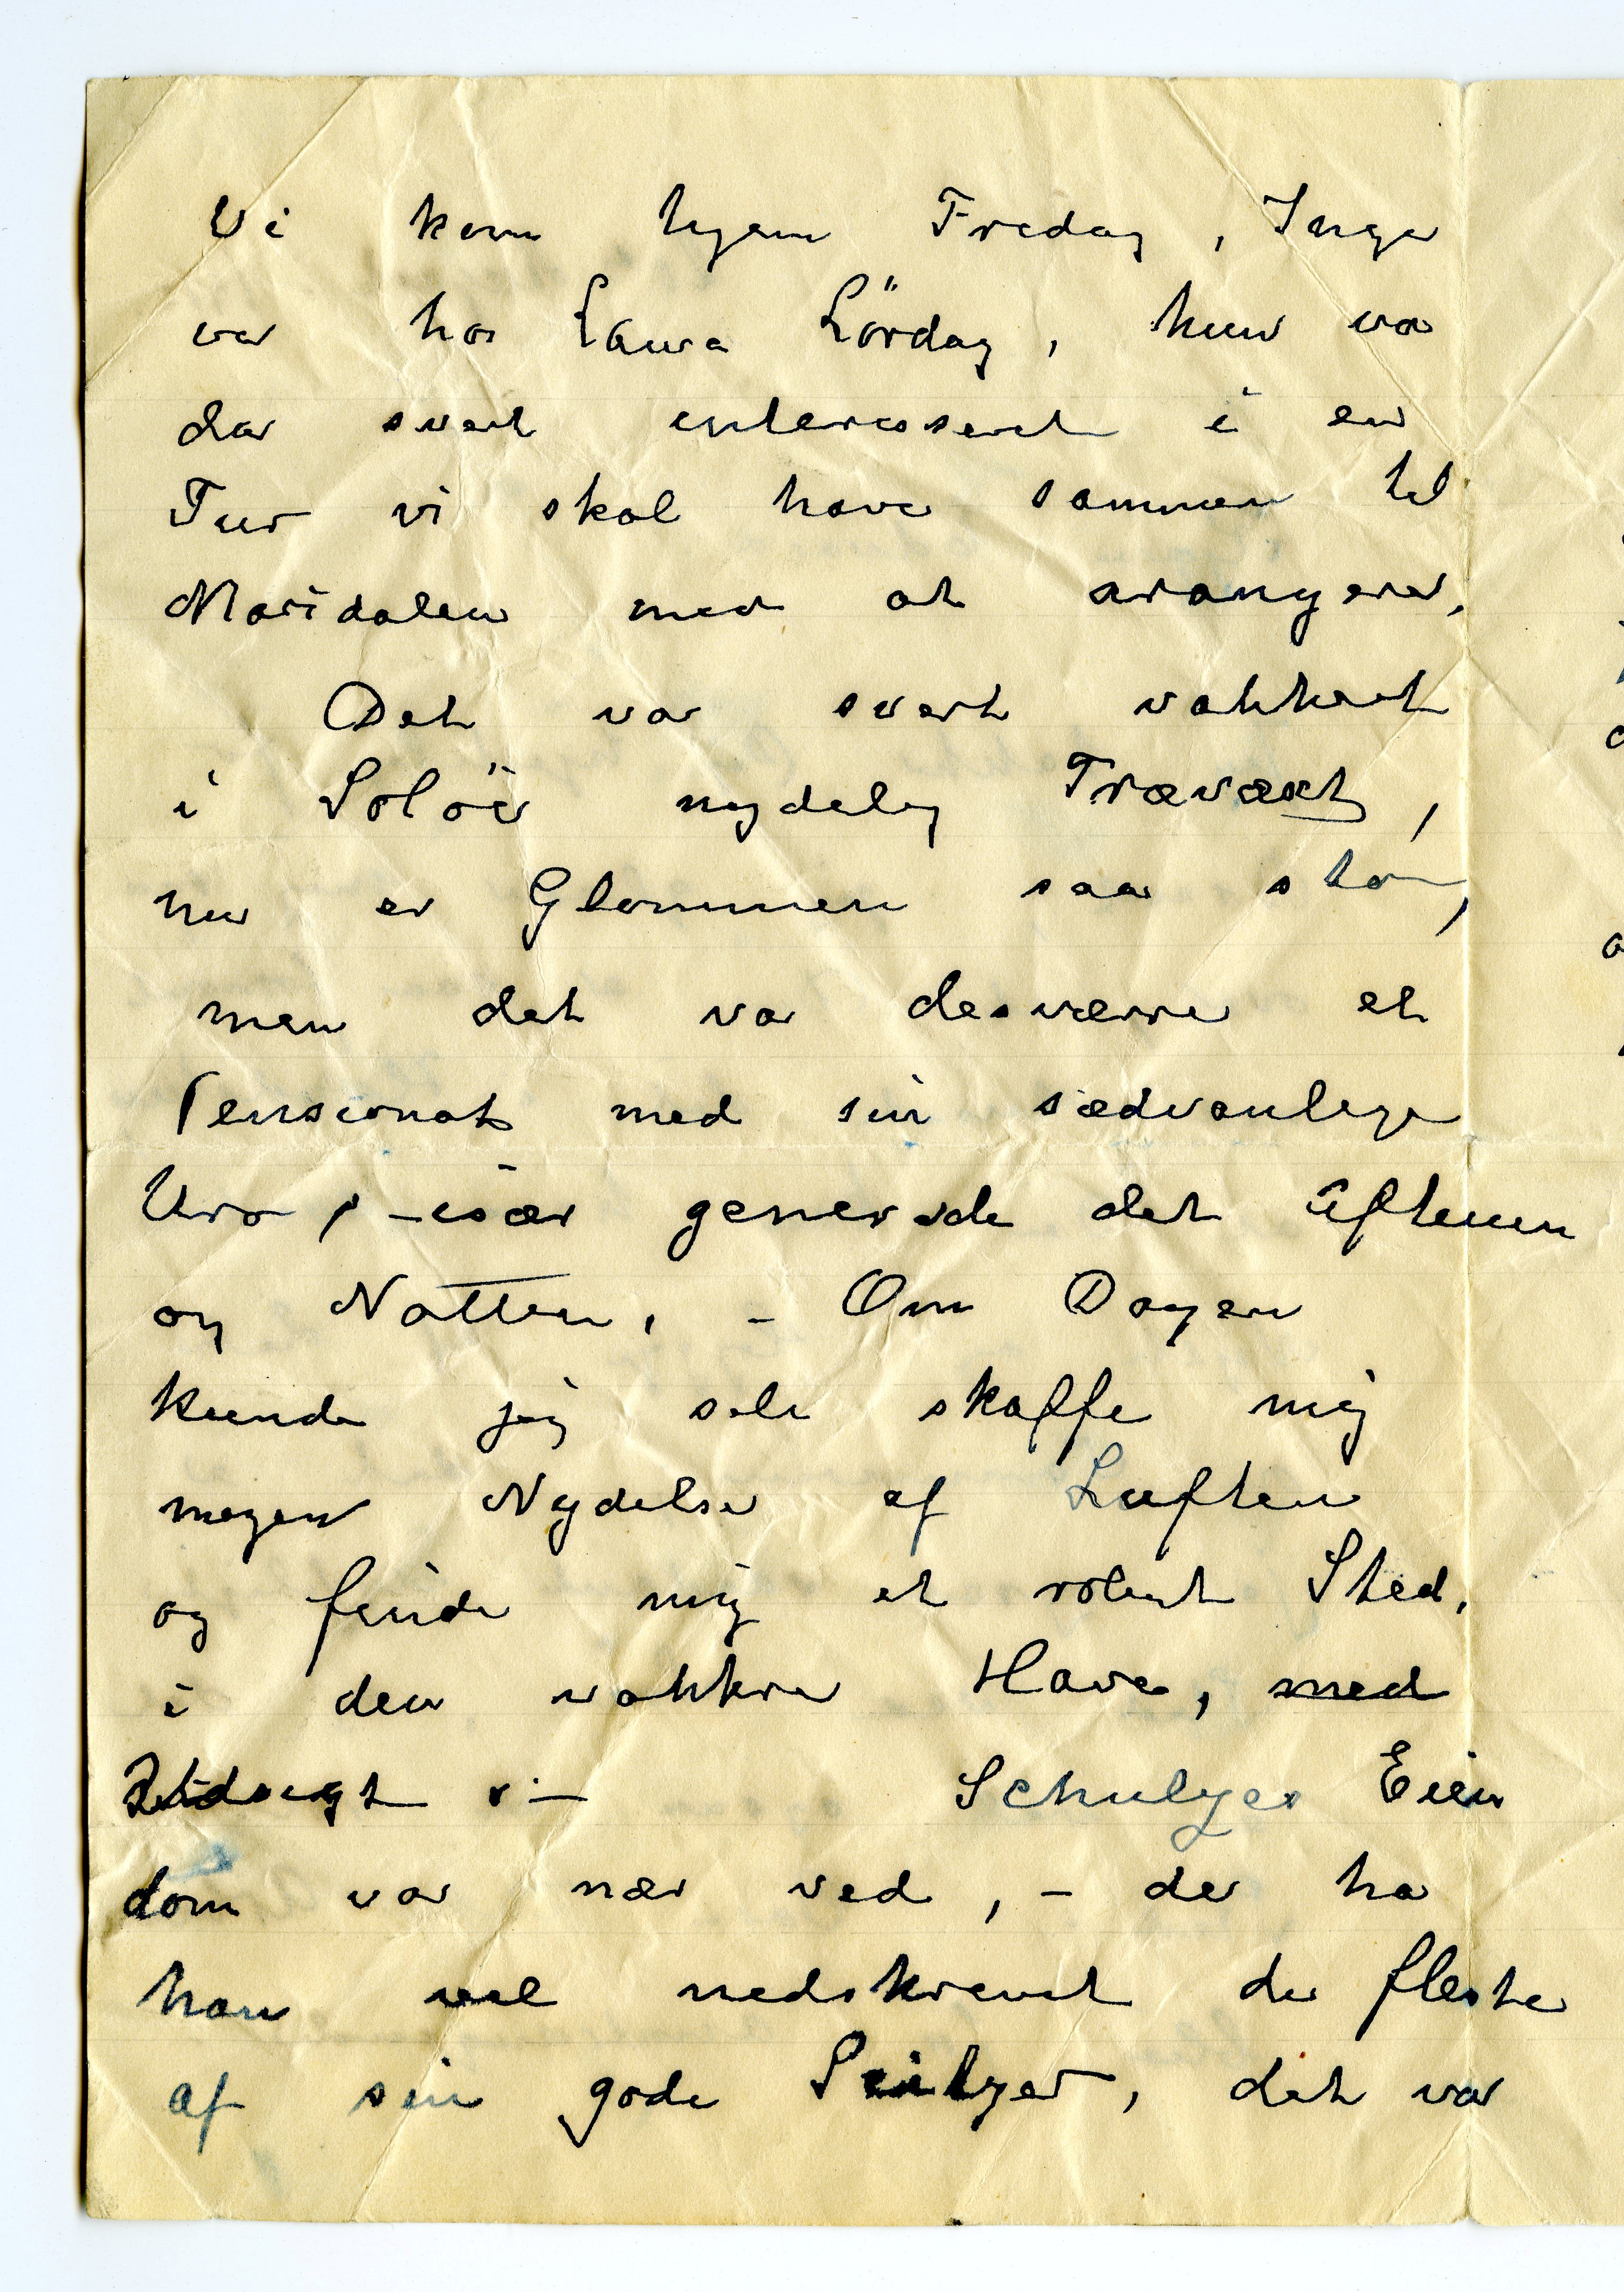 Vi kom hjem Fredag, Inga
var hos Laura Lördag, hun var
da svert interessert i en
Tur vi skal have sammen til
Maridalen med at arangere.
Det var svert vakkert
i Solöir nydelig Trævæxt,
nu er Glommen saa stor,
men det var desværre et
Pensionat med sin sædvanlige
Uro, - især generede det Aftenen
og Natten, - Om Dagen
kunde jeg selv skaffe mig
megen Nydelse af Luften
og finde mig et roligt Sted,
i den vakkre Have, med
Udsigt Schulzes Eien
dom var nær ved, - der har
han vel nedskrevet de fleste
af sin gode , det var